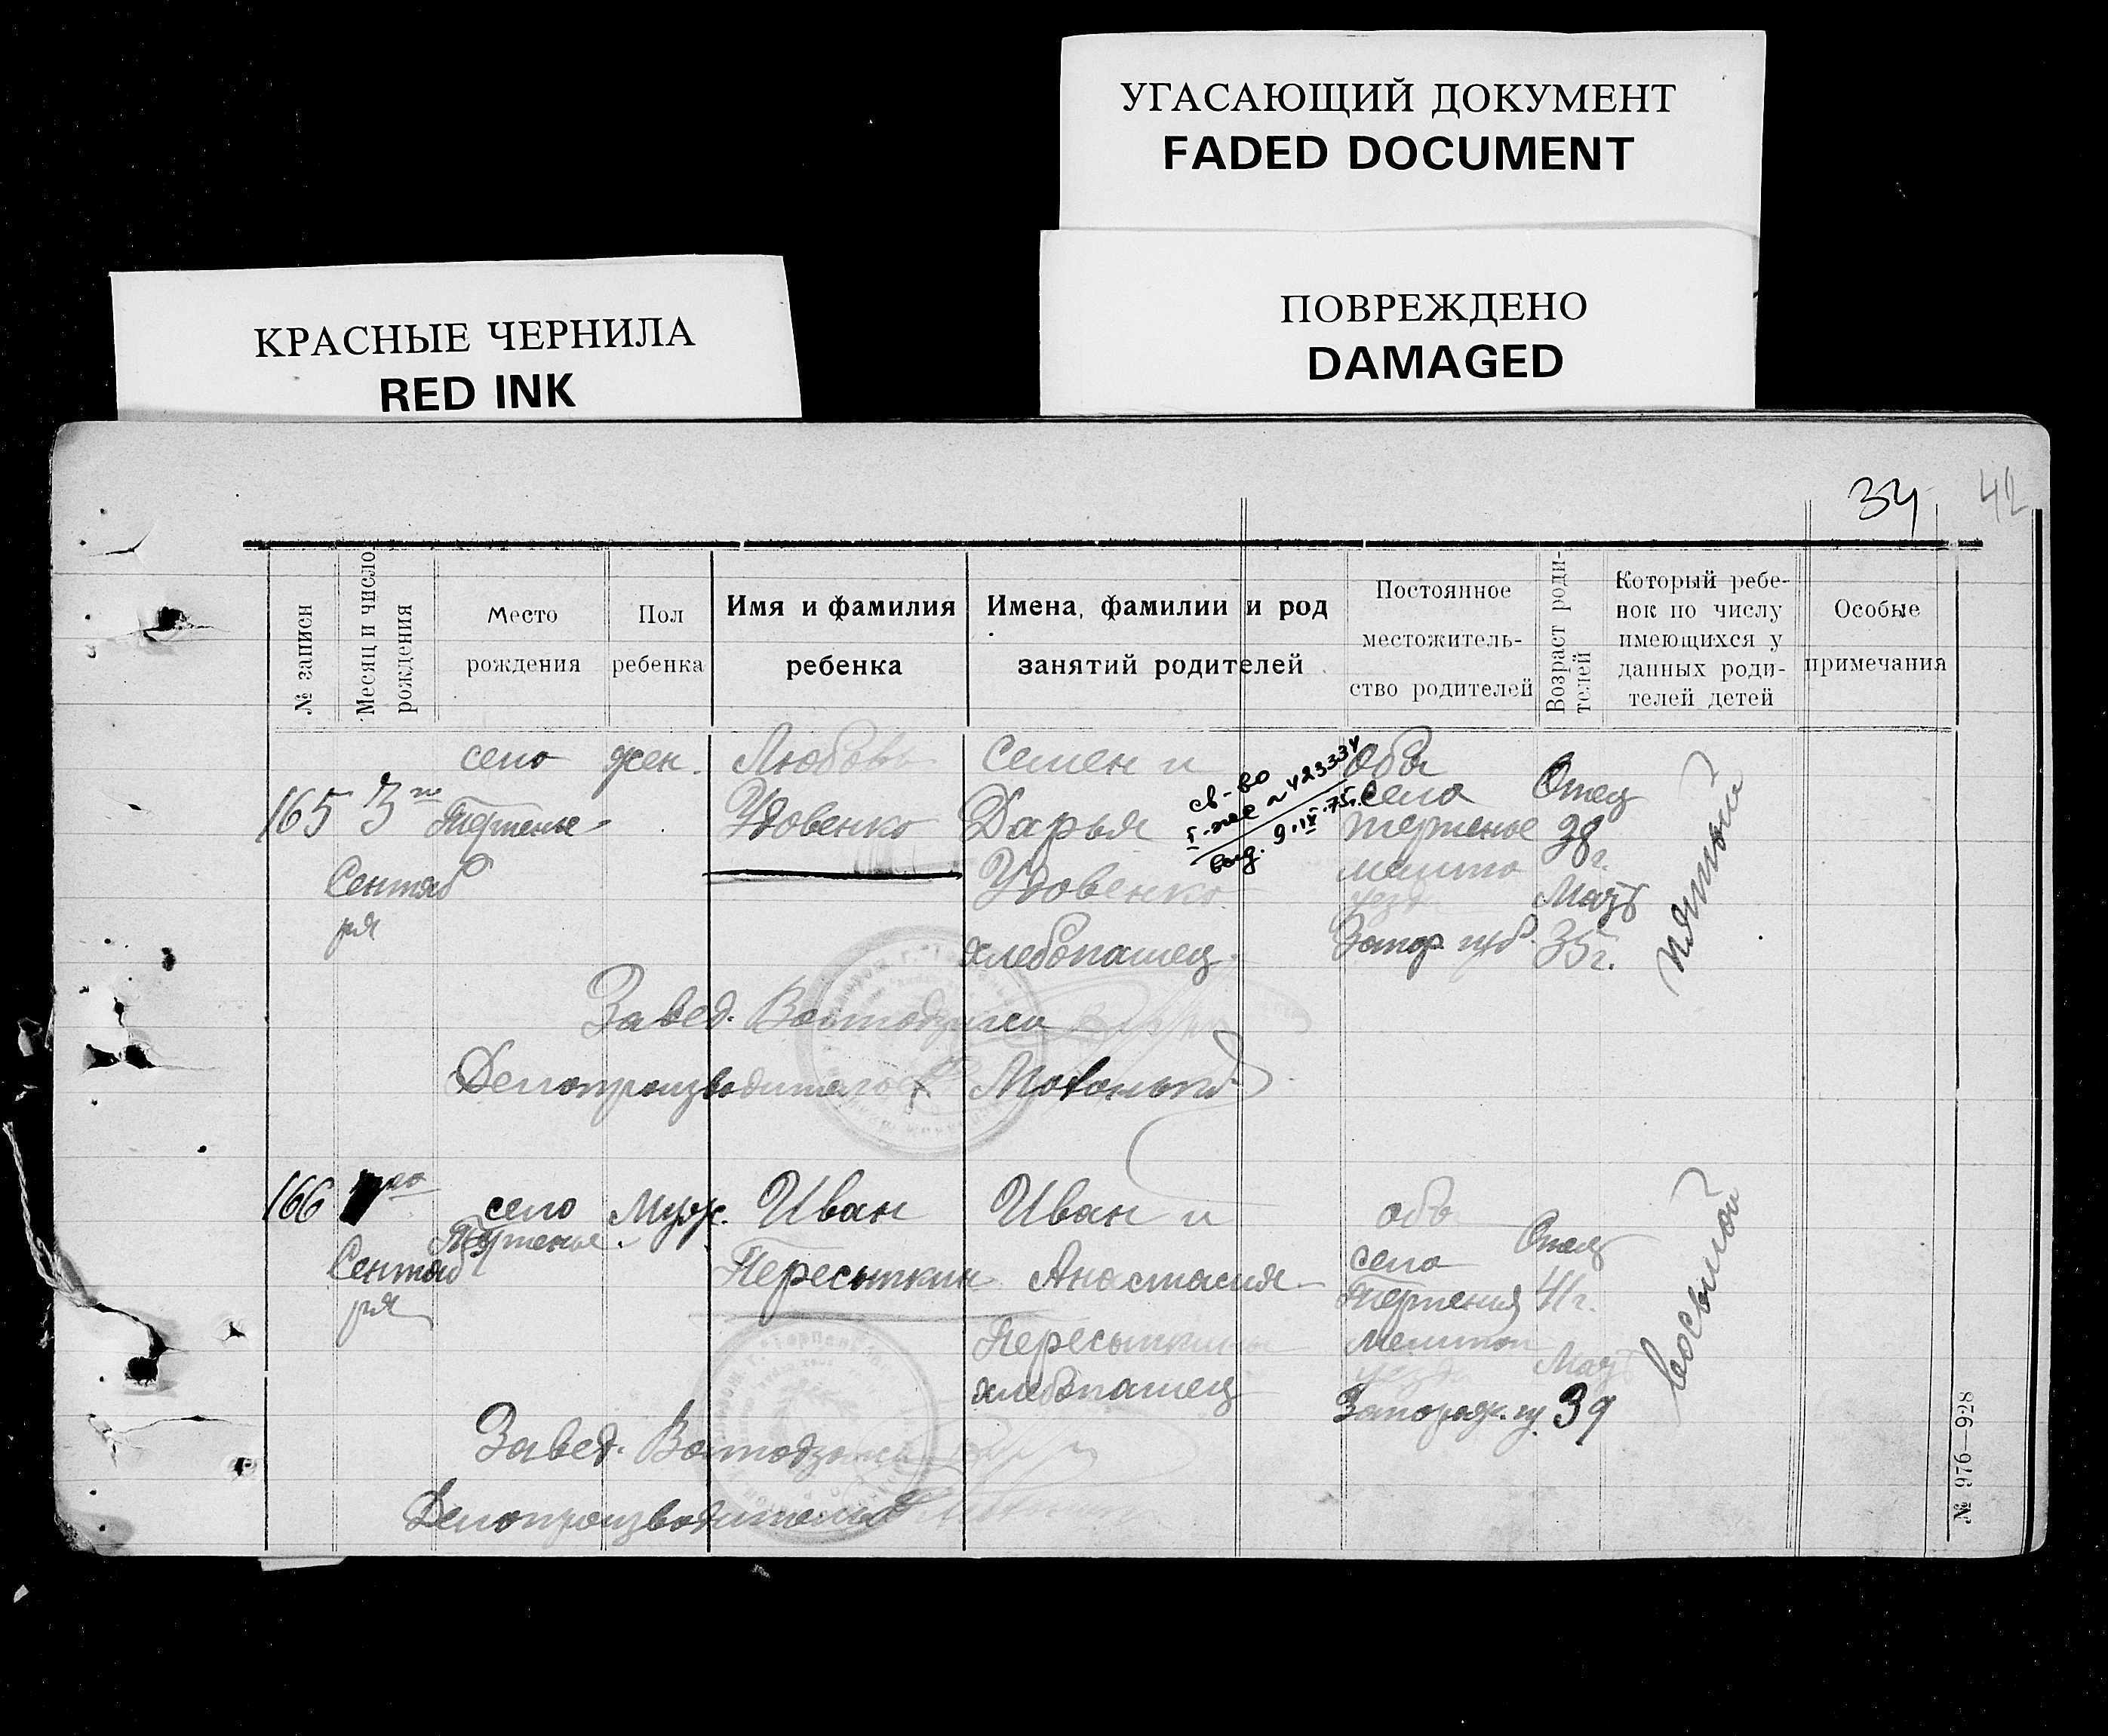 УГАСАЮЩИЙ ДОКУМЕНТ
FADED DOCUMENT
КРАСНЫЕ ЧЕРНИЛА
RED INK
ПОВРЕЖДЕНО
DAMAGED
34
42
№ записи
Месяц и число
рождения
Место
рождения
Пол
ребенка
Имя и фамилия
ребенка
Имена, фамилии и род
занятий родителей
Постоянное
местожитель-
ство родителей
Возраст роди-
телей
Который ребе-
нок по числу
имеющихся у
данных роди-
телей детей
Особые
примечания
165
3го
Сентяб
ря
село
Терпенье
жен.
Любовь
Удовенко
Семен и
Дарья
Удовенко
хлебопашец
св-во
выд. 9.IX.75г.
Оба
села
Терпенье
мелито
уезд
Запор. губ.
Отец
38 г.
Мать
35 г.
пятый
Завед.
Делопроизводитель
166
Сентяб
ря
село
Терпенье
Муж.
Иван
Пересыпкин
Иван и
Анастасия
Пересыпкины
хлебопашец
оба
села
Терпения
мелитоп
уезд
Запорож. гу
Отец
41 г.
Мать
39
восьмой
Завед.
Делопроизводитель
№ 976—928